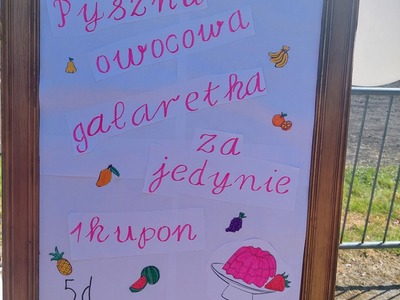 Pyszna
owocowa
galaretka
za
jedynie
1 kupon
5d